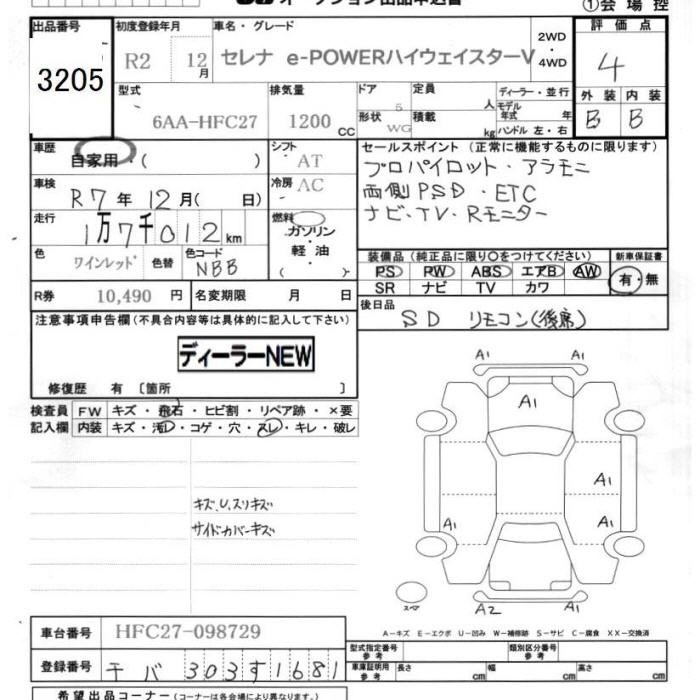 オークション出品申込書
①会場控
出品番号
3205
初度登録年月
R2 12月
車名・グレード
セレナ e-POWERハイウェイスターV
2WD
・
4WD
評価点
4
外装 内装
B B
型式
6AA-HFC27
排気量
1200 CC
ドア
5
形状
WG
定員
人
積載
kg
ディーラー・並行
モデル年式 年
ハンドル 左・右
車歴
自家用・( )
シフト
AT
車検
R7年12月( 日)
冷房
AC
走行
1万7千012km
燃料
ガソリン
・
軽油
( )
色
ワインレッド
色替
色コード
NBB
R券 10,490 円
名変期限 月 日
セールスポイント(正常に機能するものに限ります)
プロパイロット・アラモニ
両側PSD・ETC
ナビ・TV・Rモニター
装備品(純正品に限り〇をつけてください)
PS PW ABS エアB AW
SR ナビ TV カワ
新車保証書
有・無
後日品
SD リモコン(後席)
注意事項申告欄(不具合内容等は具体的に記入して下さい)
ディーラーNEW
修復歴 有 〔箇所 〕
検査員記入欄
FW キズ・飛石・ヒビ割・リペア跡・×要
内装 キズ・汚レ・コゲ・穴・スレ・キレ・破レ
キズ、U、スリキズ
サイドカバーキズ
A1 A1
A1
A1
A1 A1
スペア
A2 A1
A-キズ E-エクボ U-凹み W-補修跡 S-サビ C-腐食 XX-交換済
車台番号 HFC27-098729
登録番号 千バ 303す1681
型式指定番号 参考
類別区分番号 参考
車庫証明用 参考
長さ cm 幅 cm 高さ cm
希望出品コーナー(コーナーは各会場により異なります。)